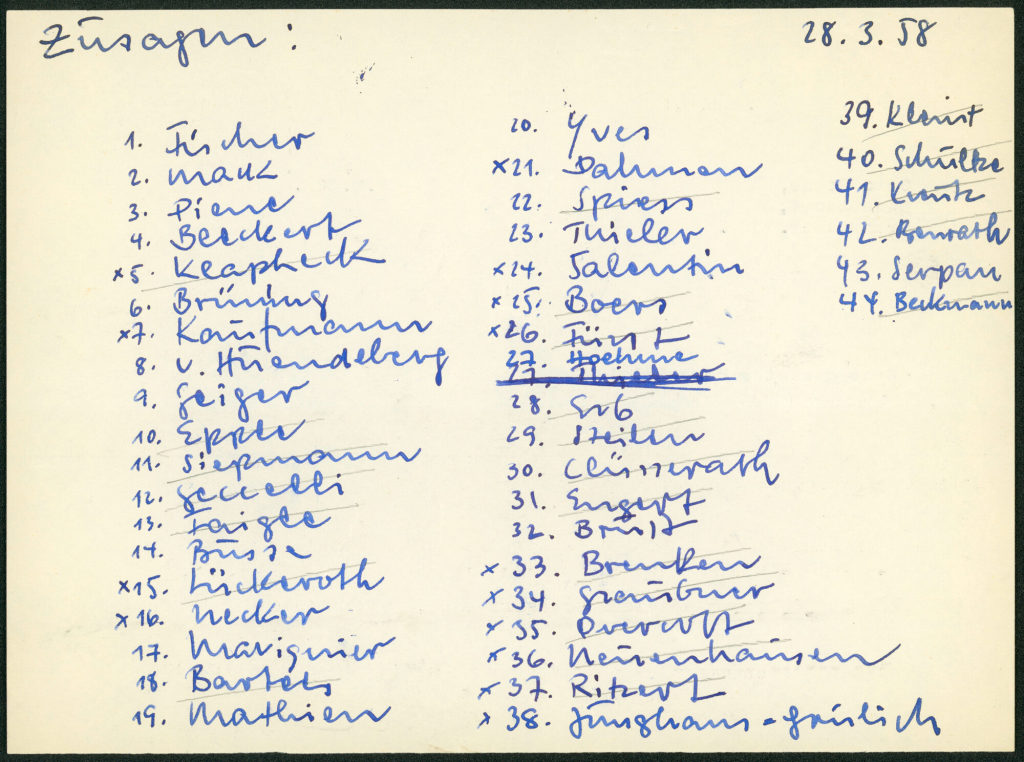 Zusagen:
28.3.58
1. Fischer
2. Mack
3. Piene
4. Beeckert
x5. Klapheck
6. Brüning
x7. Kaufmann
8. v. Huendeberg
9. Geiger
10. Epple
11. Siepmann
12. Geccelli
13. Faigle
14. Busse
x15. Lückeroth
x16. Necker
17. Marignier
18. Bartels
19. Mathieu
20. Yves
x21. Dahmen
22. Spiess
23. Thieler
x24. Salentin
x25. Boers
x26. Fürst
27. Hoehme
27. Thieler
28. Erb
29. Steilen
30. Clüsserath
31. Engert
32. Brüll
x 33. Brenken
x 34. Graubner
x 35. Overhoff
x 36. Neuenhausen
x 37. Ritzert
x 38. Junghans-Grulich
39. Kleint
40. Schultze
41. Kreutz
42. Benrath
43. Serpan
44. Beckmann